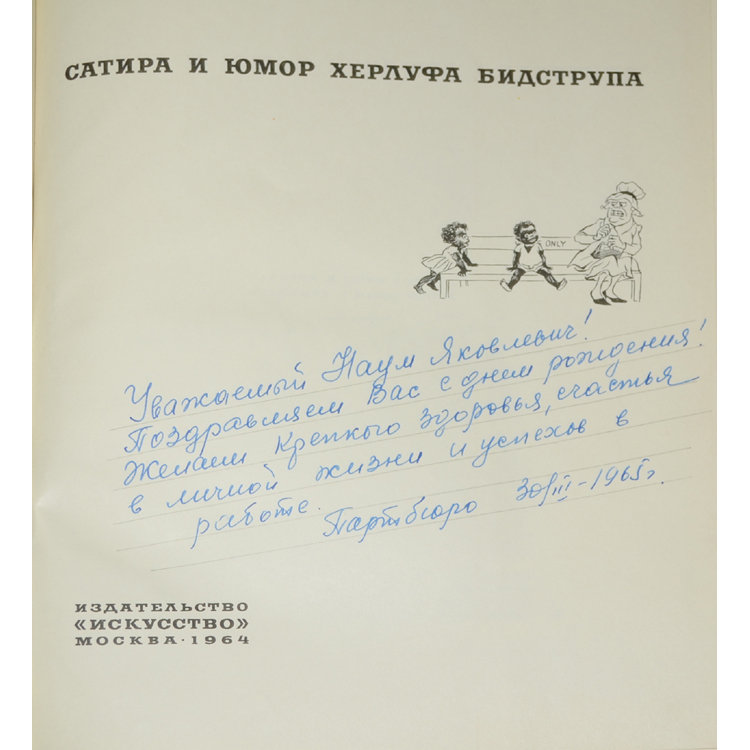 САТИРА И ЮМОР ХЕРЛУФА БИДСТРУПА
ONLY
Уважаемый Наум Яковлевич!
Поздравляем Вас с днем рождения!
Желаем крепкого здоровья, счастья
в личной жизни и успехов в
работе.
Партбюро 30/III-1965г.
ИЗДАТЕЛЬСТВО
«ИСКУССТВО»
МОСКВА · 1964